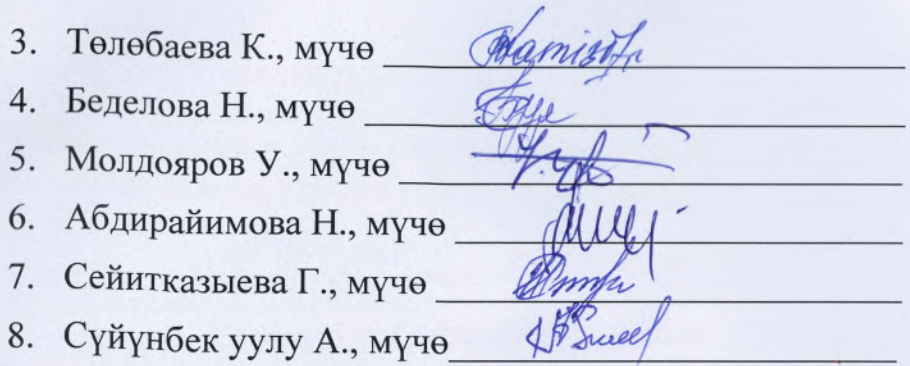 3. Төлөбаева К., мүчө
4. Беделова Н., мүчө
5. Молдояров У., мүчө
6. Абдирайимова Н., мүчө
7. Сейитказыева Г., мүчө
8. Сүйүнбек уулу А., мүчө